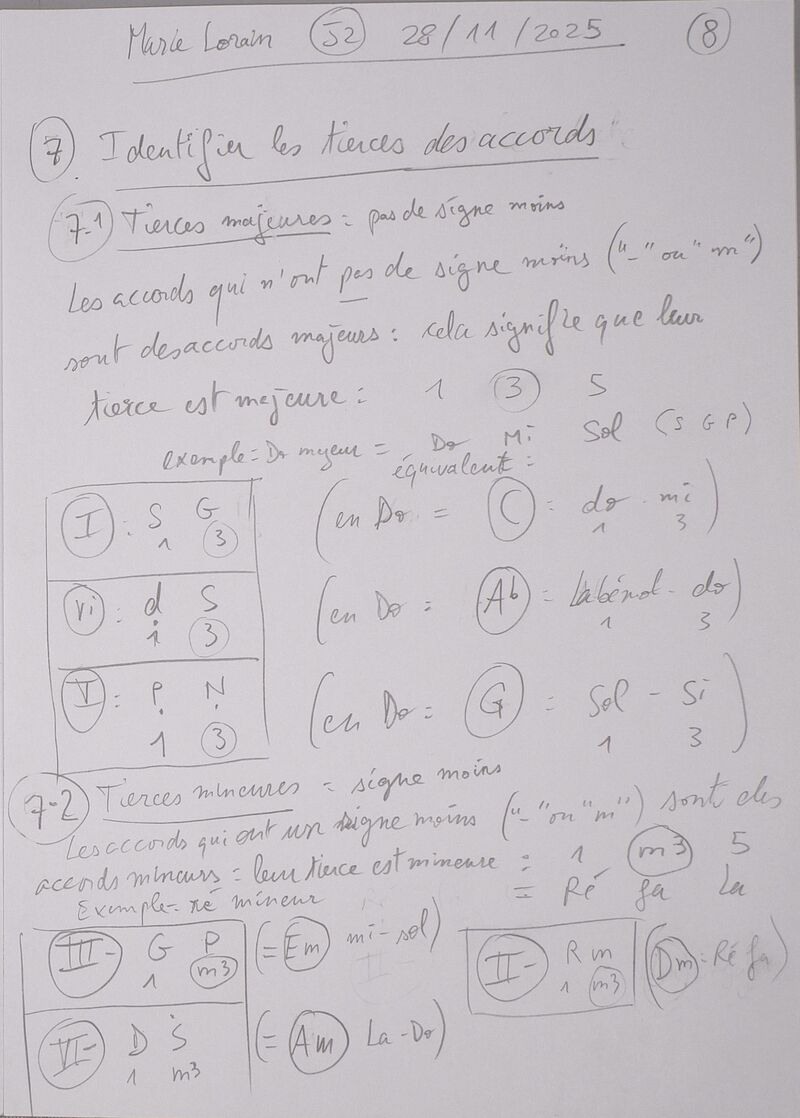 Marie Lorain J2 28/11/2025 8
7. Identifier les tierces des accords
7-1 Tierces majeures = pas de signe moins
Les accords qui n'ont pas de signe moins ("-" ou "m")
sont des accords majeurs : cela signifie que leur
tierce est majeure : 1 3 5
exemple = Do majeur = Do Mi Sol (S G P)
équivalent :
I : S G (en Do = C = do - mi)
1 3 1 3
vi : d S (en Do = Ab = La bémol - do)
1 3 1 3
V : P N (en Do = G = Sol - Si)
1 3 1 3
7-2 Tierces mineures = signe moins
Les accords qui ont un signe moins ("-" ou "m") sont des
accords mineurs = leur tierce est mineure : 1 m3 5
Exemple = ré mineur = Ré fa La
III- G P (= Em mi-sol) II- R m (Dm = Ré fa)
1 m3 1 m3
VI- D S (= Am La-Do)
1 m3